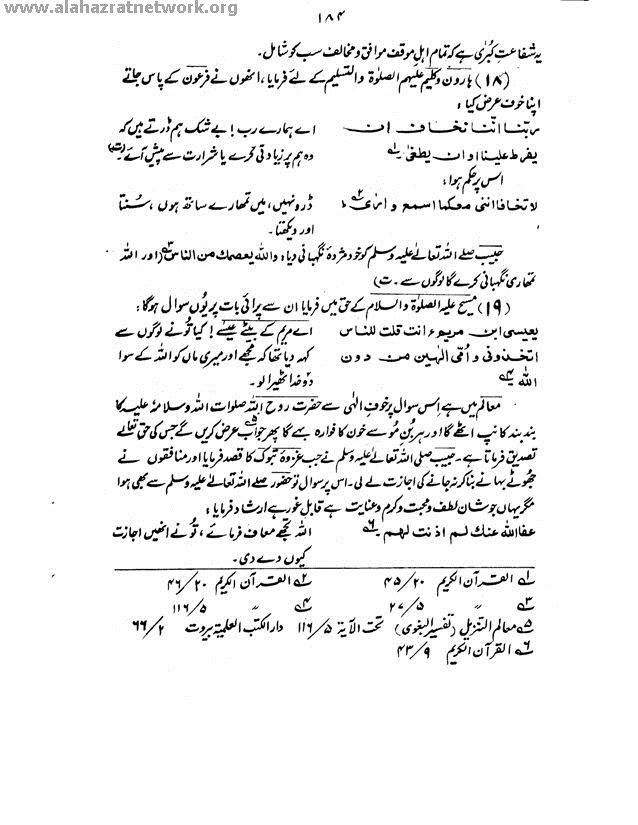 www.alahazratnetwork.org
۱۸۴
یہ شفاعتِ کبرٰی ہے کہ تمام اہلِ موقف موافق و مخالف سب کو شامل۔
(۱۸) ہارون و کلیم علیہم الصلٰوۃ والتسلیم کے لئے فرمایا، انھوں نے فرعون کے پاس جاتے
اپنا خوف عرض کیا :
ربنا اننا نخاف ان اے ہمارے رب ! بے شک ہم ڈرتے ہیں کہ
یفرط علینا او ان یطغی ۱؎ وہ ہم پر زیادتی کرے یا شرارت سے پیش آئے (ت)
اس پر حکم ہوا :
لا تخافا اننی معکما اسمع و ارٰی ۲؎ ڈرو نہیں، میں تمھارے ساتھ ہوں ، سُنتا
اور دیکھتا۔
حبیب صلے اللہ تعالٰے علیہ وسلم کو خود مژدۂ نگہبانی دیا، واللہ یعصمک من الناس ۳؎ (اور اللہ
تمھاری نگہبانی کرے گا لوگوں سے ۔ ت)
(۱۹) مسیح علیہ الصلوٰۃ والسلام کے حق میں فرمایا ان سے پرائی بات پر یُوں سوال ہوگا :
یعیسی ابن مریم ءانت قلت للناس اے مریم کے بیٹے عیسٰے ! کیا تُو نے لوگوں سے
اتخذونی و اُمّی الٰہین من دون کہہ دیا تھا کہ مجھے اور میری ماں کو اللہ کے سوا
اللہ ۴؎ دو خدا ٹھہرا لو۔
معالم میں ہے اس سوال پر خوفِ الٰہی سے حضرت روح اللہ صلوات اللہ وسلامہٗ علیہ کا
بند بند کانپ اٹھے گا اور ہر بُنِ مُو سے خون کا فوارہ بہے گا ۵؎ پھر جواب عرض کریں گے جس کی حق تعالٰے
تصدیق فرماتا ہے۔ حبیب صلی اللہ تعالٰے علیہ وسلم نے جب غزوۂ تبوک کا قصد فرمایا اور منافقوں نے
جھُوٹے بہانے بنا کر نہ جانے کی اجازت لے لی۔ اس پر سوال تو حضور صلے اللہ تعالٰے علیہ وسلم سے بھی ہوا
مگر یہاں جو شانِ لطف و محبت و کرم و عنایت ہے قابلِ غور ہے ارشاد فرمایا :
عفا اللہ عنک لم اذنت لہم ۶؎ اللہ تجھے معاف فرمائے ، تُو نے انھیں اجازت
کیوں دے دی ۔
۱؎ القرآن الکریم ۲۰/ ۴۵ ۲؎ القرآن الکریم ۲۰/ ۴۶
۳؎ " ۵/ ۲۷ ۴؎ " ۵/ ۱۱۶
۵؎ معالم التنزیل (تفسیر البغوی) تحت الآیۃ ۵/ ۱۱۶ دار الکتب العلمیۃ بیروت ۲/ ۶۶
۶؎ القرآن الکریم ۹/ ۴۳